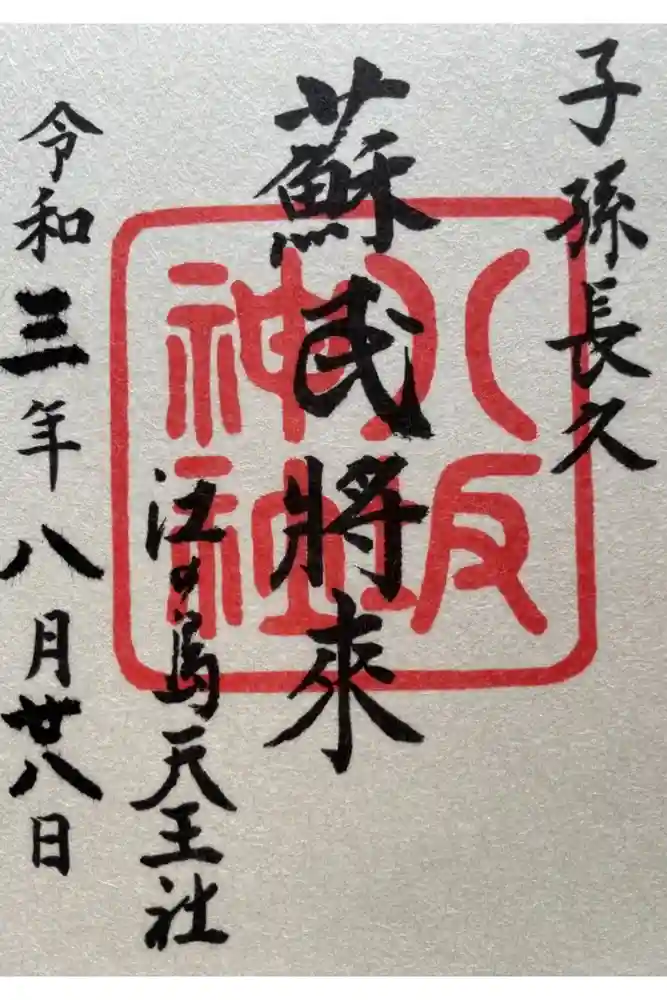 子孫長久
蘇民將來
八坂
神社
江の島天王社
令和三年八月廿八日